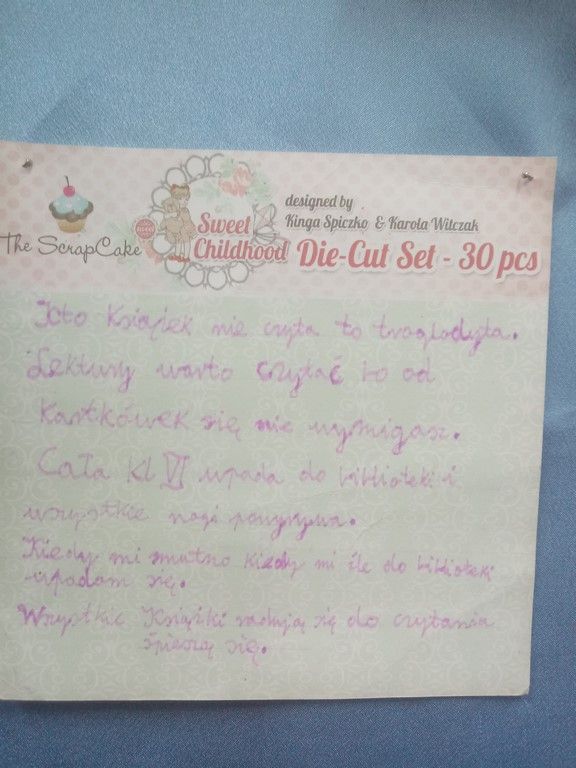 The ScrapCake
Sweet
Childhood
designed by
Kinga Spiczko & Karola Witczak
Die-Cut Set - 30 pcs
Kto Książek nie czyta to troglodyta.
Lektury warto czytać bo od
Kartkówek się nie wymigasz.
Cała Kl VI wpada do biblioteki i
wszystkie nogi
Kiedy mi smutno kiedy mi źle do biblioteki
wpadam się.
Wszystkie Książki radują się do czytania
śpieszą się.